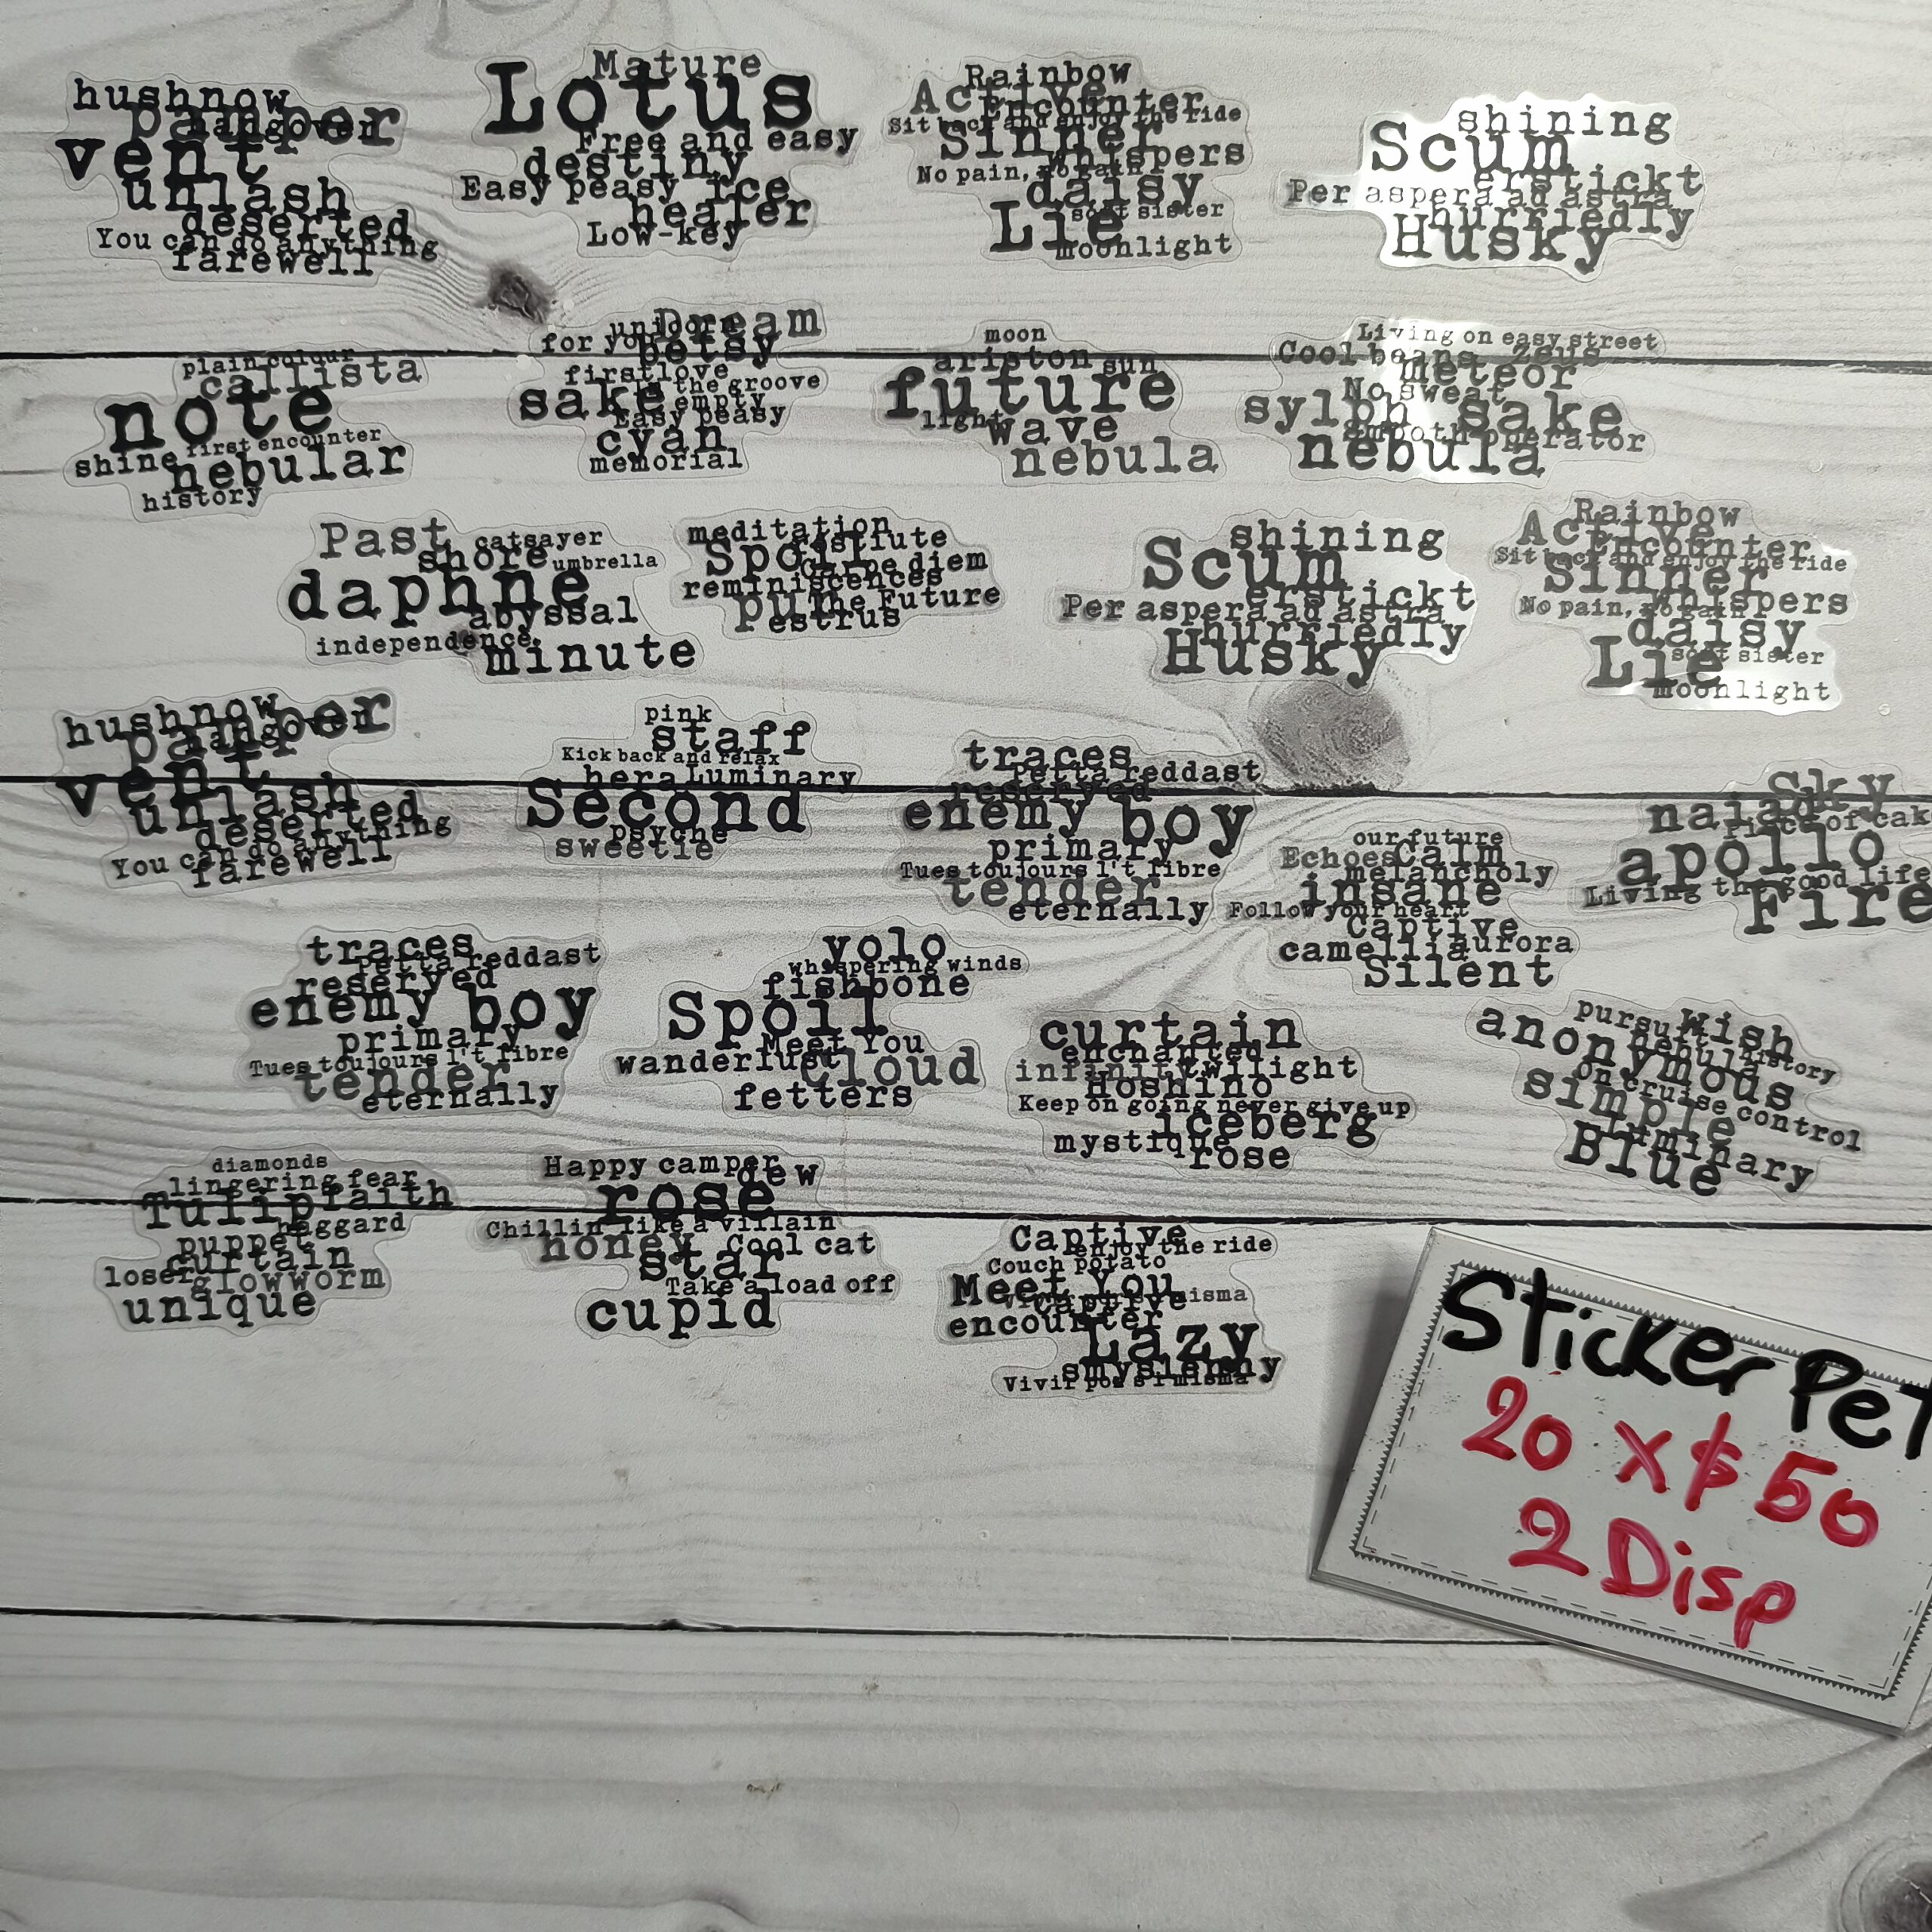 hushnow
pamper
hangover
vent
unlash
deserted
You can do anything
farewell
Mature
Lotus
Free and easy
destiny
Easy peasy
ice
healer
Low-key
Rainbow
Active
Encounter
Sit back and enjoy the ride
Sinner
Whispers
No pain, no gain
daisy
soft sister
Lie
moonlight
shining
Scum
erstickt
Per aspera ad astra
hurriedly
Husky
plain colour
callista
note
first encounter
shine
nebular
history
Dream
unicorn
for you
betsy
firstlove
the groove
sake
empty
Easy peasy
cyan
memorial
moon
ariston
sun
future
light
wave
nebula
Living on easy street
Cool beans
Zeus
meteor
No sweat
sylph
sake
Smooth operator
nebula
Past
catsayer
shore
umbrella
daphne
abyssal
independence
minute
meditation
Spoil
Carpe diem
reminiscences
The Future
estrus
shining
Scum
erstickt
Per aspera ad astra
hurriedly
Husky
Rainbow
Active
Encounter
Sit back and enjoy the ride
Sinner
Whispers
No pain, no gain
daisy
soft sister
Lie
moonlight
hushnow
pamper
hangover
vent
unlash
deserted
You can do anything
farewell
pink
staff
Kick back and relax
hera
Luminary
Second
psyche
sweetie
traces
Petta reddast
reserved
enemy boy
primary
Tues toujours l't fibre
tender
eternally
our future
Echoes
Calm
melancholy
insane
Follow your heart
Captive
camellia
aurora
Silent
Sky
naiad
Piece of cak
apollo
Living the good life
Fire
traces
Petta reddast
reserved
enemy boy
primary
Tues toujours l't fibre
tender
eternally
yolo
whispering winds
fishbone
Spoil
Meet You
wanderlust
cloud
fetters
curtain
enchanted
infinity
twilight
Hoshino
Keep on going never give up
iceberg
mystique
rose
pursuit
Wish
anonymous
nebula
history
On cruise control
simple
luminary
Blue
diamonds
lingering fear
Tulip
faith
haggard
puppet
curtain
loser
glowworm
unique
Happy camper
dew
rose
Chillin like a villain
honey
Cool cat
star
Take a load off
cupid
Captive
enjoy the ride
Couch potato
Meet You
captive
encounter
Lazy
smyslenny
Sticker PeT
20 X $ 50
2 Disp